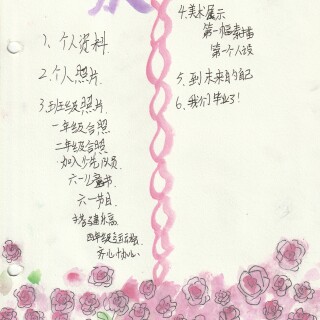 1、个人资料.
2.个人照片.
3.班级照片.
一年级合照
二年级合照
加入少先队员
六一儿童节.
六一节目.
四年级运动会
齐心协力.
4.美术展示
第一幅素描
第一个人设
5.到未来的自己
6.我们毕业了!